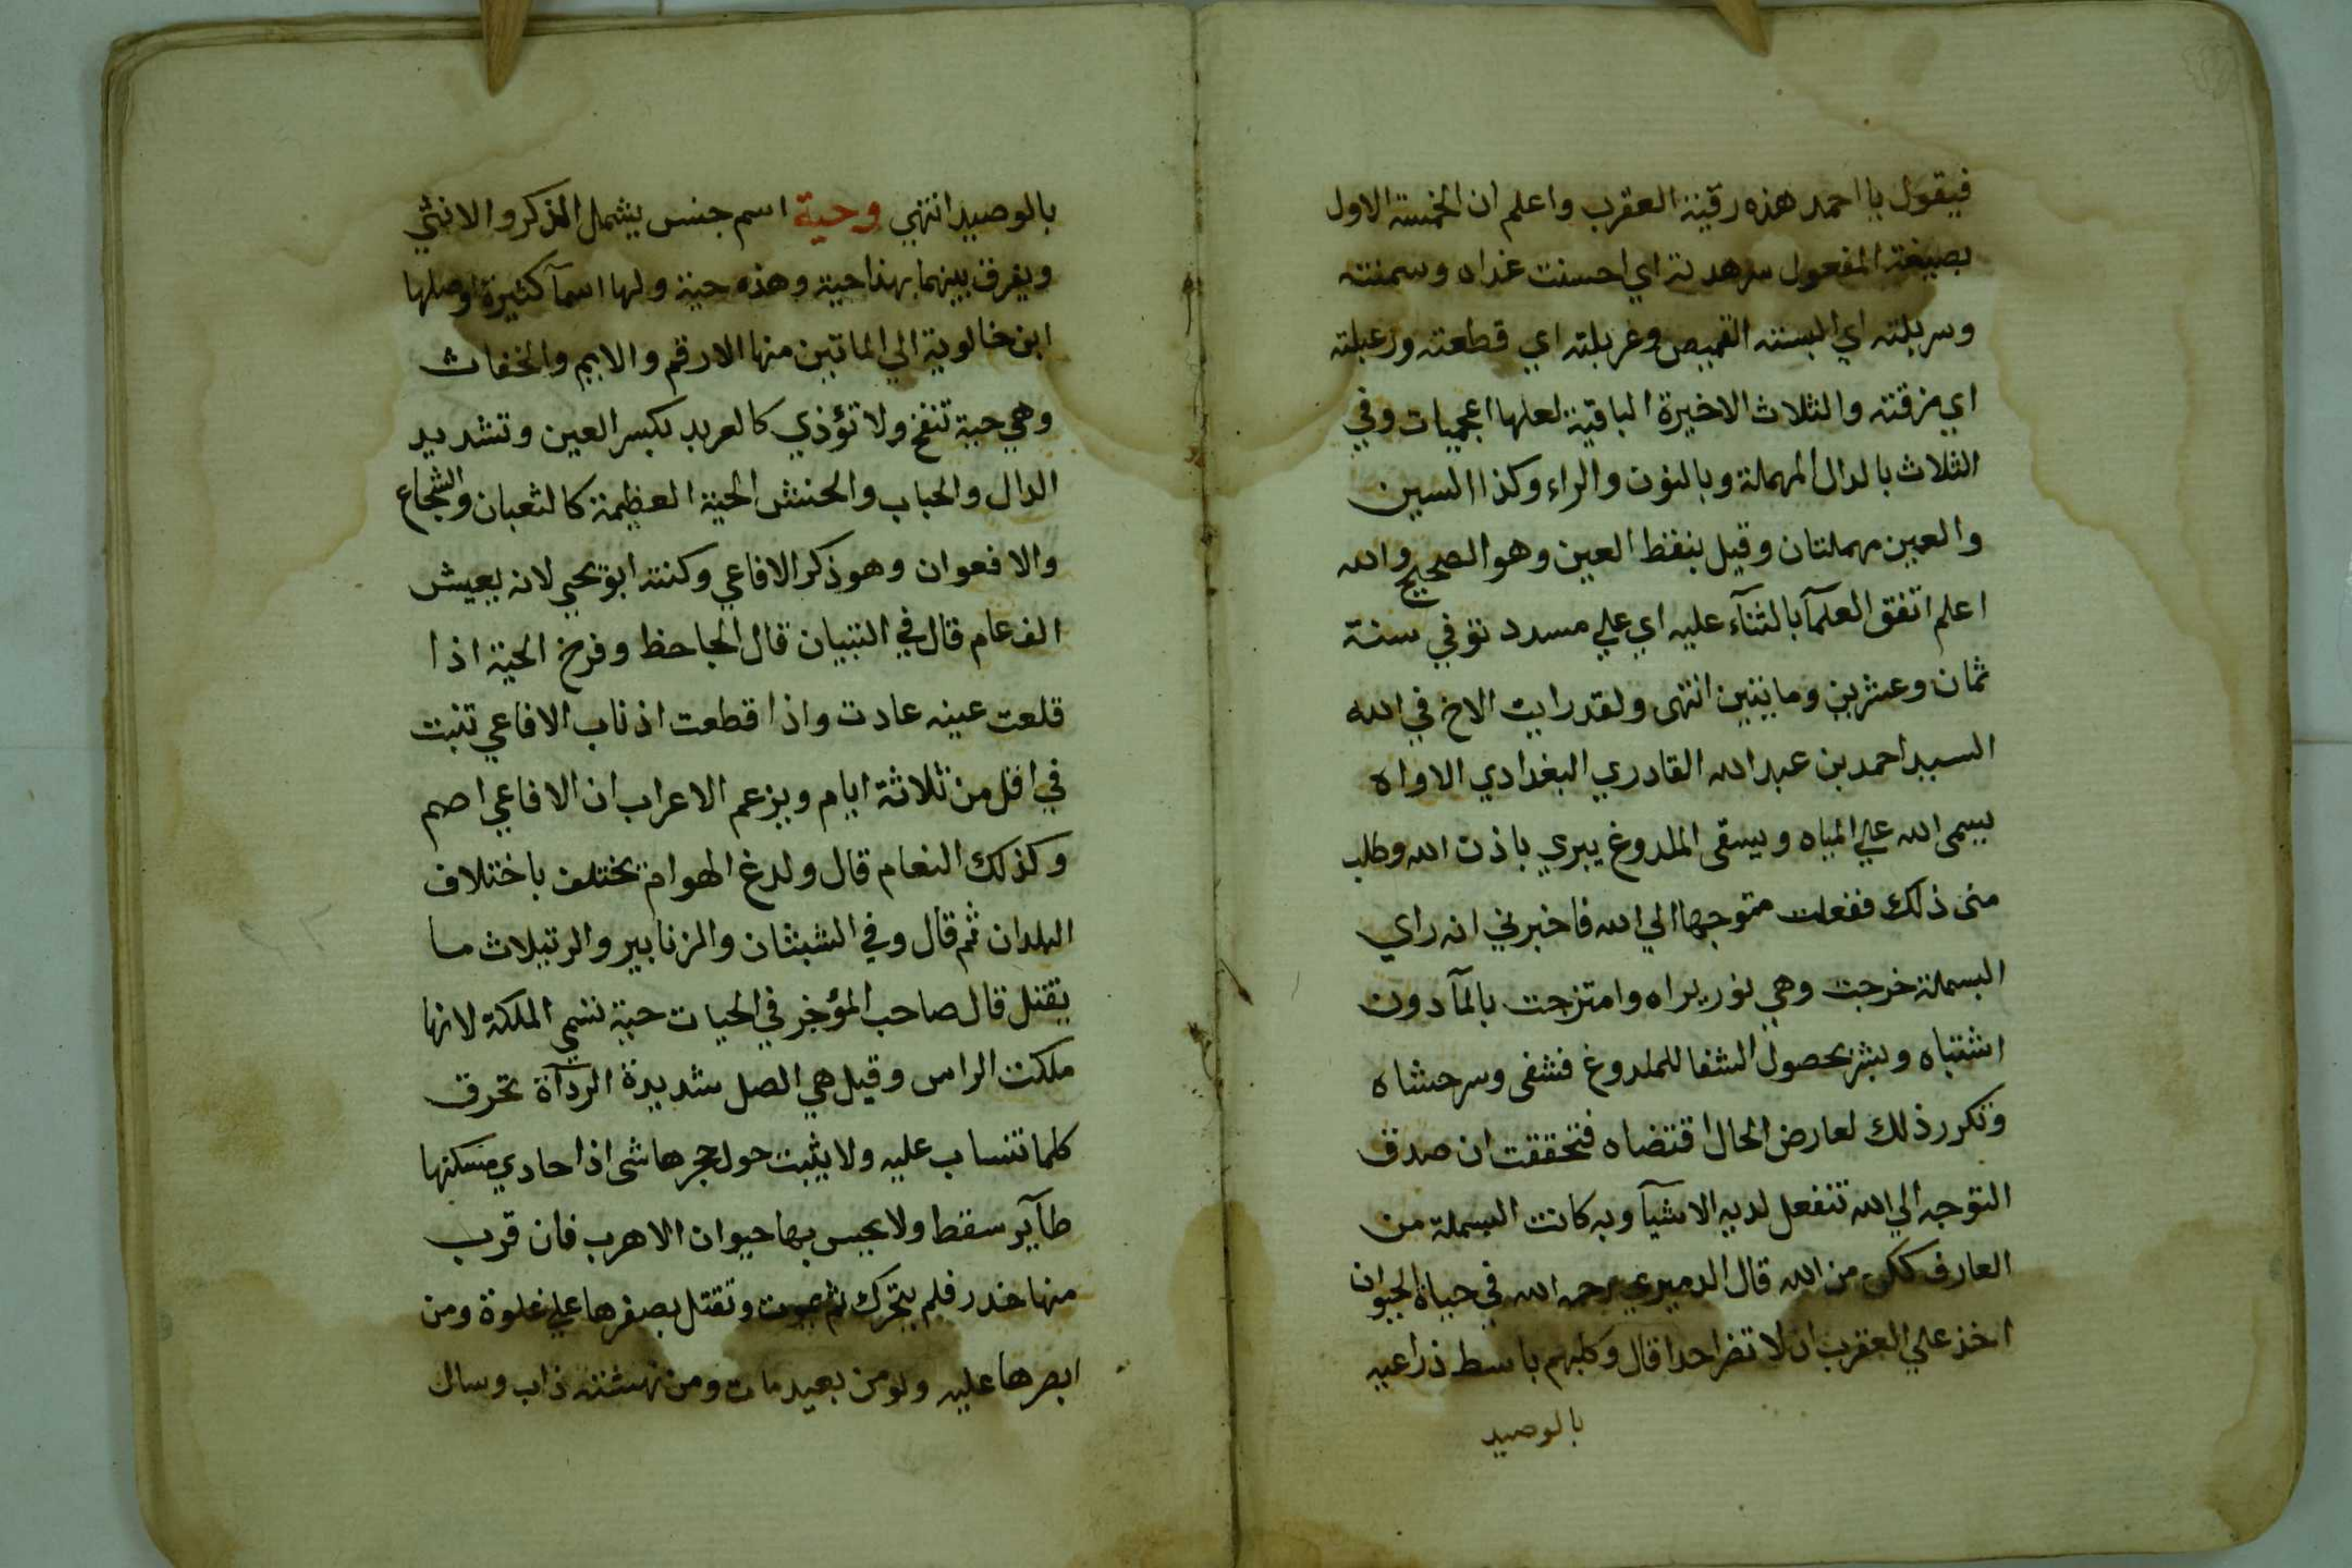 فيقول يا احمد هذه رقية العقرب واعلم ان الخمسة الاول
بصيغة المفعول سرهدته اي احسنت غذاه وسمنته
وسربلته اي البسته القميص وغربلته اي قطعته ورعبلته
اي مزقته والثلاث الاخيرة الباقية لعلها اعجميات وفي
الثلاث بالدال المهملة وبالنون والراء وكذا السين
والعين مهملتان وقيل بنقط العين وهو الصحيح والله
اعلم اتفق العلمآ بالثنآء عليه اي علي مسدد توفي سنة
ثمان وعشرين ومايتين انتهى ولقد رايت الاخ في الله
السيد احمد بن عبد الله القادري البغدادي الاواه
يسمى الله علي المياه ويسقى الملدوغ يبري باذن الله وطلب
منى ذلك ففعلت متوجها الي الله فاخبرني انه راي
البسملة خرجت وهي نور يراه وامتزجت بالمآ دون
اشتباه وبشر بحصول الشفا للملدوغ فشفى وسرحشاه
وتكرر ذلك لعارض الحال اقتضاه فتحققت ان صدق
التوجه الي الله تنفعل لديه الاشيآ وبه كانت البسملة من
العارف ككن من الله قال الدميري رحمه الله في حياة الحيوان
اخذ علي العقرب ان لا تضر احدا قال وكلبهم باسط ذراعيه
بالوصيد
بالوصيد انتهي وحية اسم جنس يشمل الذكر والانثي
ويفرق بينهما بهذا حية وهذه حية ولها اسمآ كثيرة اوصلها
ابن خالوية الي الماتين منها الارقم والايم والخفاث
وهي حية تنفخ ولا تؤذي كالعربد بكسر العين وتشديد
الدال والحباب والحنش الحية العظيمة كالثعبان والشجاع
والافعوان وهو ذكر الافاعي وكنته ابو يحيي لانه يعيش
الف عام قال في التبيان قال الجاحظ وفرخ الحية اذا
قلعت عينه عادت واذا قطعت اذناب الافاعي تنبت
في اقل من ثلاثة ايام ويزعم الاعراب ان الافاعي اصم
وكذلك النعام قال ولدغ الهوام يختلف باختلاف
البلدان ثم قال وفي الشبثان والزنابير والرتيلاث ما
يقتل قال صاحب المؤجز في الحيات حية تسمي الملكة لانها
ملكت الراس وقيل هي الصل شديدة الردآة تحرق
كلما تنساب عليه ولا يثبت حول حجرها شى اذا حادي مسكنها
طآير سقط ولا يحس بها حيوان الا هرب فان قرب
منها خدر فلم يتحرك ثم يموت وتقتل بصفرها علي غلوة ومن
ابصرها عليه ولو من بعيد مات ومن نهشته ذاب وسال